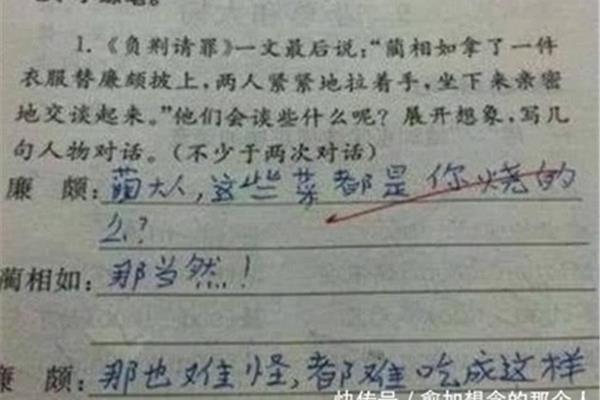 1.《负荆请罪》一文最后说:“蔺相如拿了一件
衣服替廉颇披上,两人紧紧地拉着手,坐下来亲密
地交谈起来。”他们会谈些什么呢?展开想象,写几
句人物对话。(不少于两次对话)
廉 颇:蔺大人,这些菜都是你烧的
么?
蔺相如:那当然!
廉 颇:那也难怪,都难吃成这样
快传号/愈加想念的那个人